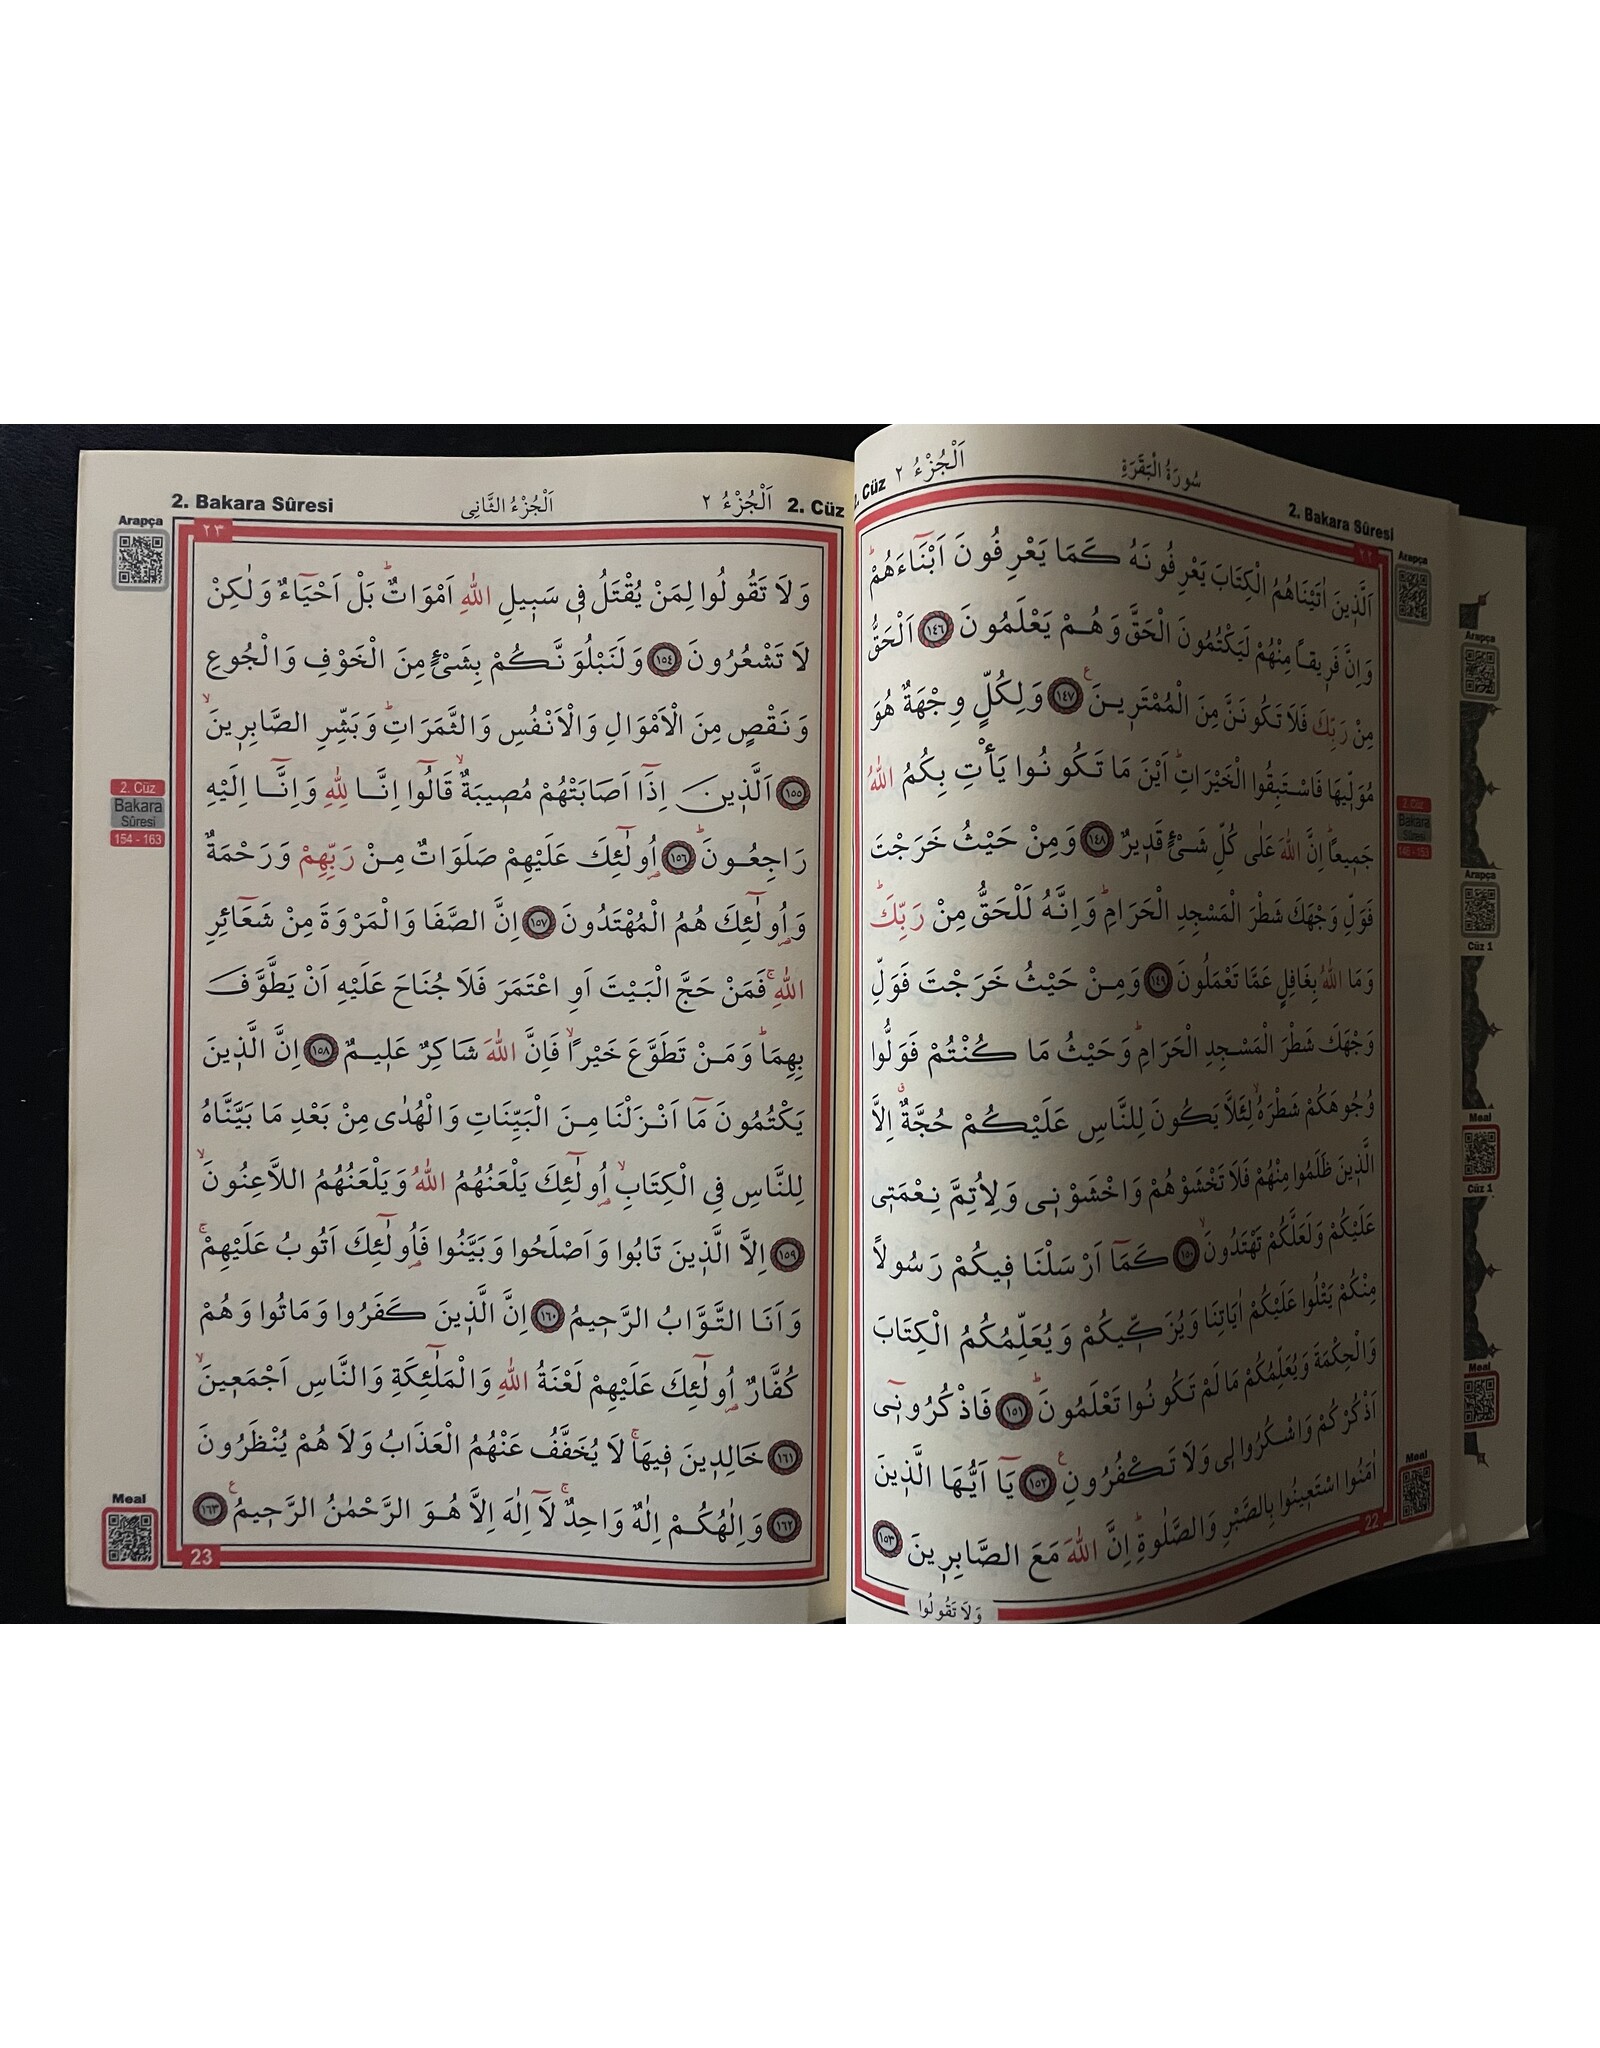 2. Cüz اَلْجُزْءُ ٢ سُورَةُ الْبَقَرَةِ 2. Bakara Sûresi
٢٢
اَلَّذ۪ينَ اٰتَيْنَاهُمُ الْكِتَابَ يَعْرِفُونَهُ كَمَا يَعْرِفُونَ اَبْنَٓاءَهُمْۜ
وَاِنَّ فَر۪يقاً مِنْهُمْ لَيَكْتُمُونَ الْحَقَّ وَهُمْ يَعْلَمُونَ ﴿١٤٦﴾ اَلْحَقُّ
مِنْ رَبِّكَ فَلَا تَكُونَنَّ مِنَ الْمُمْتَر۪ينَ۟ ﴿١٤٧﴾ وَلِكُلٍّ وِجْهَةٌ هُوَ
مُوَلّ۪يهَا فَاسْتَبِقُوا الْخَيْرَاتِۜ اَيْنَ مَا تَكُونُوا يَأْتِ بِكُمُ اللّٰهُ
جَم۪يعاًۜ اِنَّ اللّٰهَ عَلٰى كُلِّ شَيْءٍ قَد۪يرٌ ﴿١٤٨﴾ وَمِنْ حَيْثُ خَرَجْتَ
فَوَلِّ وَجْهَكَ شَطْرَ الْمَسْجِدِ الْحَرَامِۜ وَاِنَّهُ لَلْحَقُّ مِنْ رَبِّكَۜ
وَمَا اللّٰهُ بِغَافِلٍ عَمَّا تَعْمَلُونَ ﴿١٤٩﴾ وَمِنْ حَيْثُ خَرَجْتَ فَوَلِّ
وَجْهَكَ شَطْرَ الْمَسْجِدِ الْحَرَامِۜ وَحَيْثُ مَا كُنْتُمْ فَوَلُّوا
وُجُوهَكُمْ شَطْرَهُۙ لِئَلَّا يَكُونَ لِلنَّاسِ عَلَيْكُمْ حُجَّةٌۗ اِلَّا
الَّذ۪ينَ ظَلَمُوا مِنْهُمْ فَلَا تَخْشَوْهُمْ وَاخْشَوْن۪ي وَلِاُتِمَّ نِعْمَت۪ي
عَلَيْكُمْ وَلَعَلَّكُمْ تَهْتَدُونَۙ ﴿١٥٠﴾ كَمَٓا اَرْسَلْنَا ف۪يكُمْ رَسُولاً
مِنْكُمْ يَتْلُوا عَلَيْكُمْ اٰيَاتِنَا وَيُزَكّ۪يكُمْ وَيُعَلِّمُكُمُ الْكِتَابَ
وَالْحِكْمَةَ وَيُعَلِّمُكُمْ مَا لَمْ تَكُونُوا تَعْلَمُونَۜ ﴿١٥١﴾ فَاذْكُرُون۪ٓي
اَذْكُرْكُمْ وَاشْكُرُوا ل۪ي وَلَا تَكْفُرُونِ۟ ﴿١٥٢﴾ يَٓا اَيُّهَا الَّذ۪ينَ
اٰمَنُوا اسْتَع۪ينُوا بِالصَّبْرِ وَالصَّلٰوةِۜ اِنَّ اللّٰهَ مَعَ الصَّابِر۪ينَ ﴿١٥٣﴾
22
وَلَا تَقُولُوا
Arapça
2. Cüz
Bakara
Sûresi
146 - 153
Meal
Arapça
Arapça
Cüz 1
Meal
Cüz 1
Meal
2. Bakara Sûresi اَلْجُزْءُ الثَّانِي اَلْجُزْءُ ٢ 2. Cüz
٢٣
وَلَا تَقُولُوا لِمَنْ يُقْتَلُ ف۪ي سَب۪يلِ اللّٰهِ اَمْوَاتٌۜ بَلْ اَحْيَٓاءٌ وَلٰكِنْ
لَا تَشْعُرُونَ ﴿١٥٤﴾ وَلَنَبْلُوَنَّكُمْ بِشَيْءٍ مِنَ الْخَوْفِ وَالْجُوعِ
وَنَقْصٍ مِنَ الْاَمْوَالِ وَالْاَنْفُسِ وَالثَّمَرَاتِۜ وَبَشِّرِ الصَّابِر۪ينَۙ
﴿١٥٥﴾ اَلَّذ۪ينَ اِذَٓا اَصَابَتْهُمْ مُص۪يبَةٌۙ قَالُٓوا اِنَّا لِلّٰهِ وَاِنَّٓا اِلَيْهِ
رَاجِعُونَۜ ﴿١٥٦﴾ اُو۬لٰٓئِكَ عَلَيْهِمْ صَلَوَاتٌ مِنْ رَبِّهِمْ وَرَحْمَةٌ
وَاُو۬لٰٓئِكَ هُمُ الْمُهْتَدُونَ ﴿١٥٧﴾ اِنَّ الصَّفَا وَالْمَرْوَةَ مِنْ شَعَٓائِرِ
اللّٰهِۚ فَمَنْ حَجَّ الْبَيْتَ اَوِ اعْتَمَرَ فَلَا جُنَاحَ عَلَيْهِ اَنْ يَطَّوَّفَ
بِهِمَاۜ وَمَنْ تَطَوَّعَ خَيْراًۙ فَاِنَّ اللّٰهَ شَاكِرٌ عَل۪يمٌ ﴿١٥٨﴾ اِنَّ الَّذ۪ينَ
يَكْتُمُونَ مَٓا اَنْزَلْنَا مِنَ الْبَيِّنَاتِ وَالْهُدٰى مِنْ بَعْدِ مَا بَيَّنَّاهُ
لِلنَّاسِ فِي الْكِتَابِۙ اُو۬لٰٓئِكَ يَلْعَنُهُمُ اللّٰهُ وَيَلْعَنُهُمُ اللَّاعِنُونَۙ
﴿١٥٩﴾ اِلَّا الَّذ۪ينَ تَابُوا وَاَصْلَحُوا وَبَيَّنُوا فَاُو۬لٰٓئِكَ اَتُوبُ عَلَيْهِمْۚ
وَاَنَا التَّوَّابُ الرَّح۪يمُ ﴿١٦٠﴾ اِنَّ الَّذ۪ينَ كَفَرُوا وَمَاتُوا وَهُمْ
كُفَّارٌ اُو۬لٰٓئِكَ عَلَيْهِمْ لَعْنَةُ اللّٰهِ وَالْمَلٰٓئِكَةِ وَالنَّاسِ اَجْمَع۪ينَۙ
﴿١٦١﴾ خَالِد۪ينَ ف۪يهَاۚ لَا يُخَفَّفُ عَنْهُمُ الْعَذَابُ وَلَا هُمْ يُنْظَرُونَ
﴿١٦٢﴾ وَاِلٰهُكُمْ اِلٰهٌ وَاحِدٌۚ لَٓا اِلٰهَ اِلَّا هُوَ الرَّحْمٰنُ الرَّح۪يمُ۟ ﴿١٦٣﴾
23
Arapça
2. Cüz
Bakara
Sûresi
154 - 163
Meal